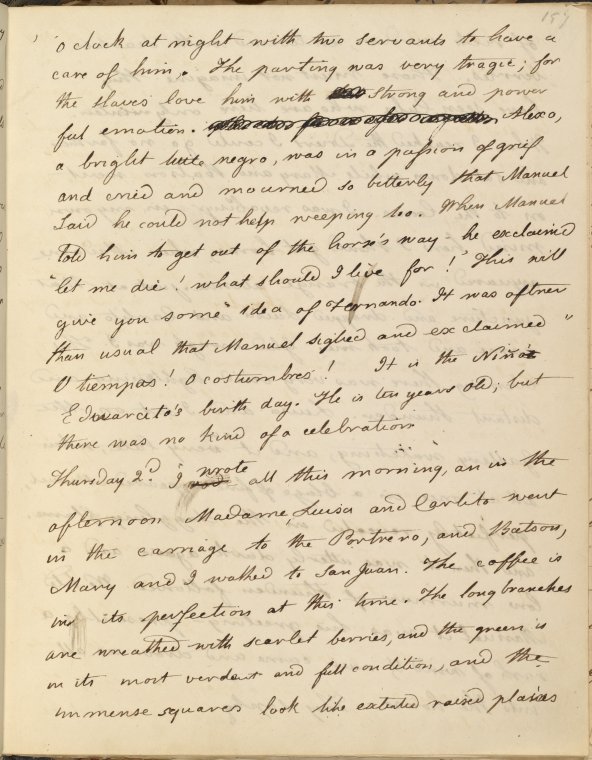 157
o clock at night with two servants to have a
care of him. The parting was very tragic; for
the slaves love him with strong and power
ful emotion. Alexo,
a bright little negro, was in a passion of grief
and cried and mourned so bitterly that Manuel
said he could not help weeping too. When Manuel
told him to get out of the horse's way he exclaimed
"let me die! what should I live for!" This will
give you some idea of Fernando. It was oftner
than usual that Manuel sighed and exclaimed "
O tiempas! O costumbres! It is the Niño
Eduarcito's birth day. He is ten years old; but
there was no kind of a celebration
Thursday 2d. I wrote all this morning, an in the
afternoon Madame, Luisa and Carlito went
in the carriage to the Portrero, and Batson,
Mary and I walked to San Juan. The coffee is
in its perfection at this time. The long branches
are wreathed with scarlet berries, and the green is
in its most verdant and full condition, and the
immense squares look like extended raised plains